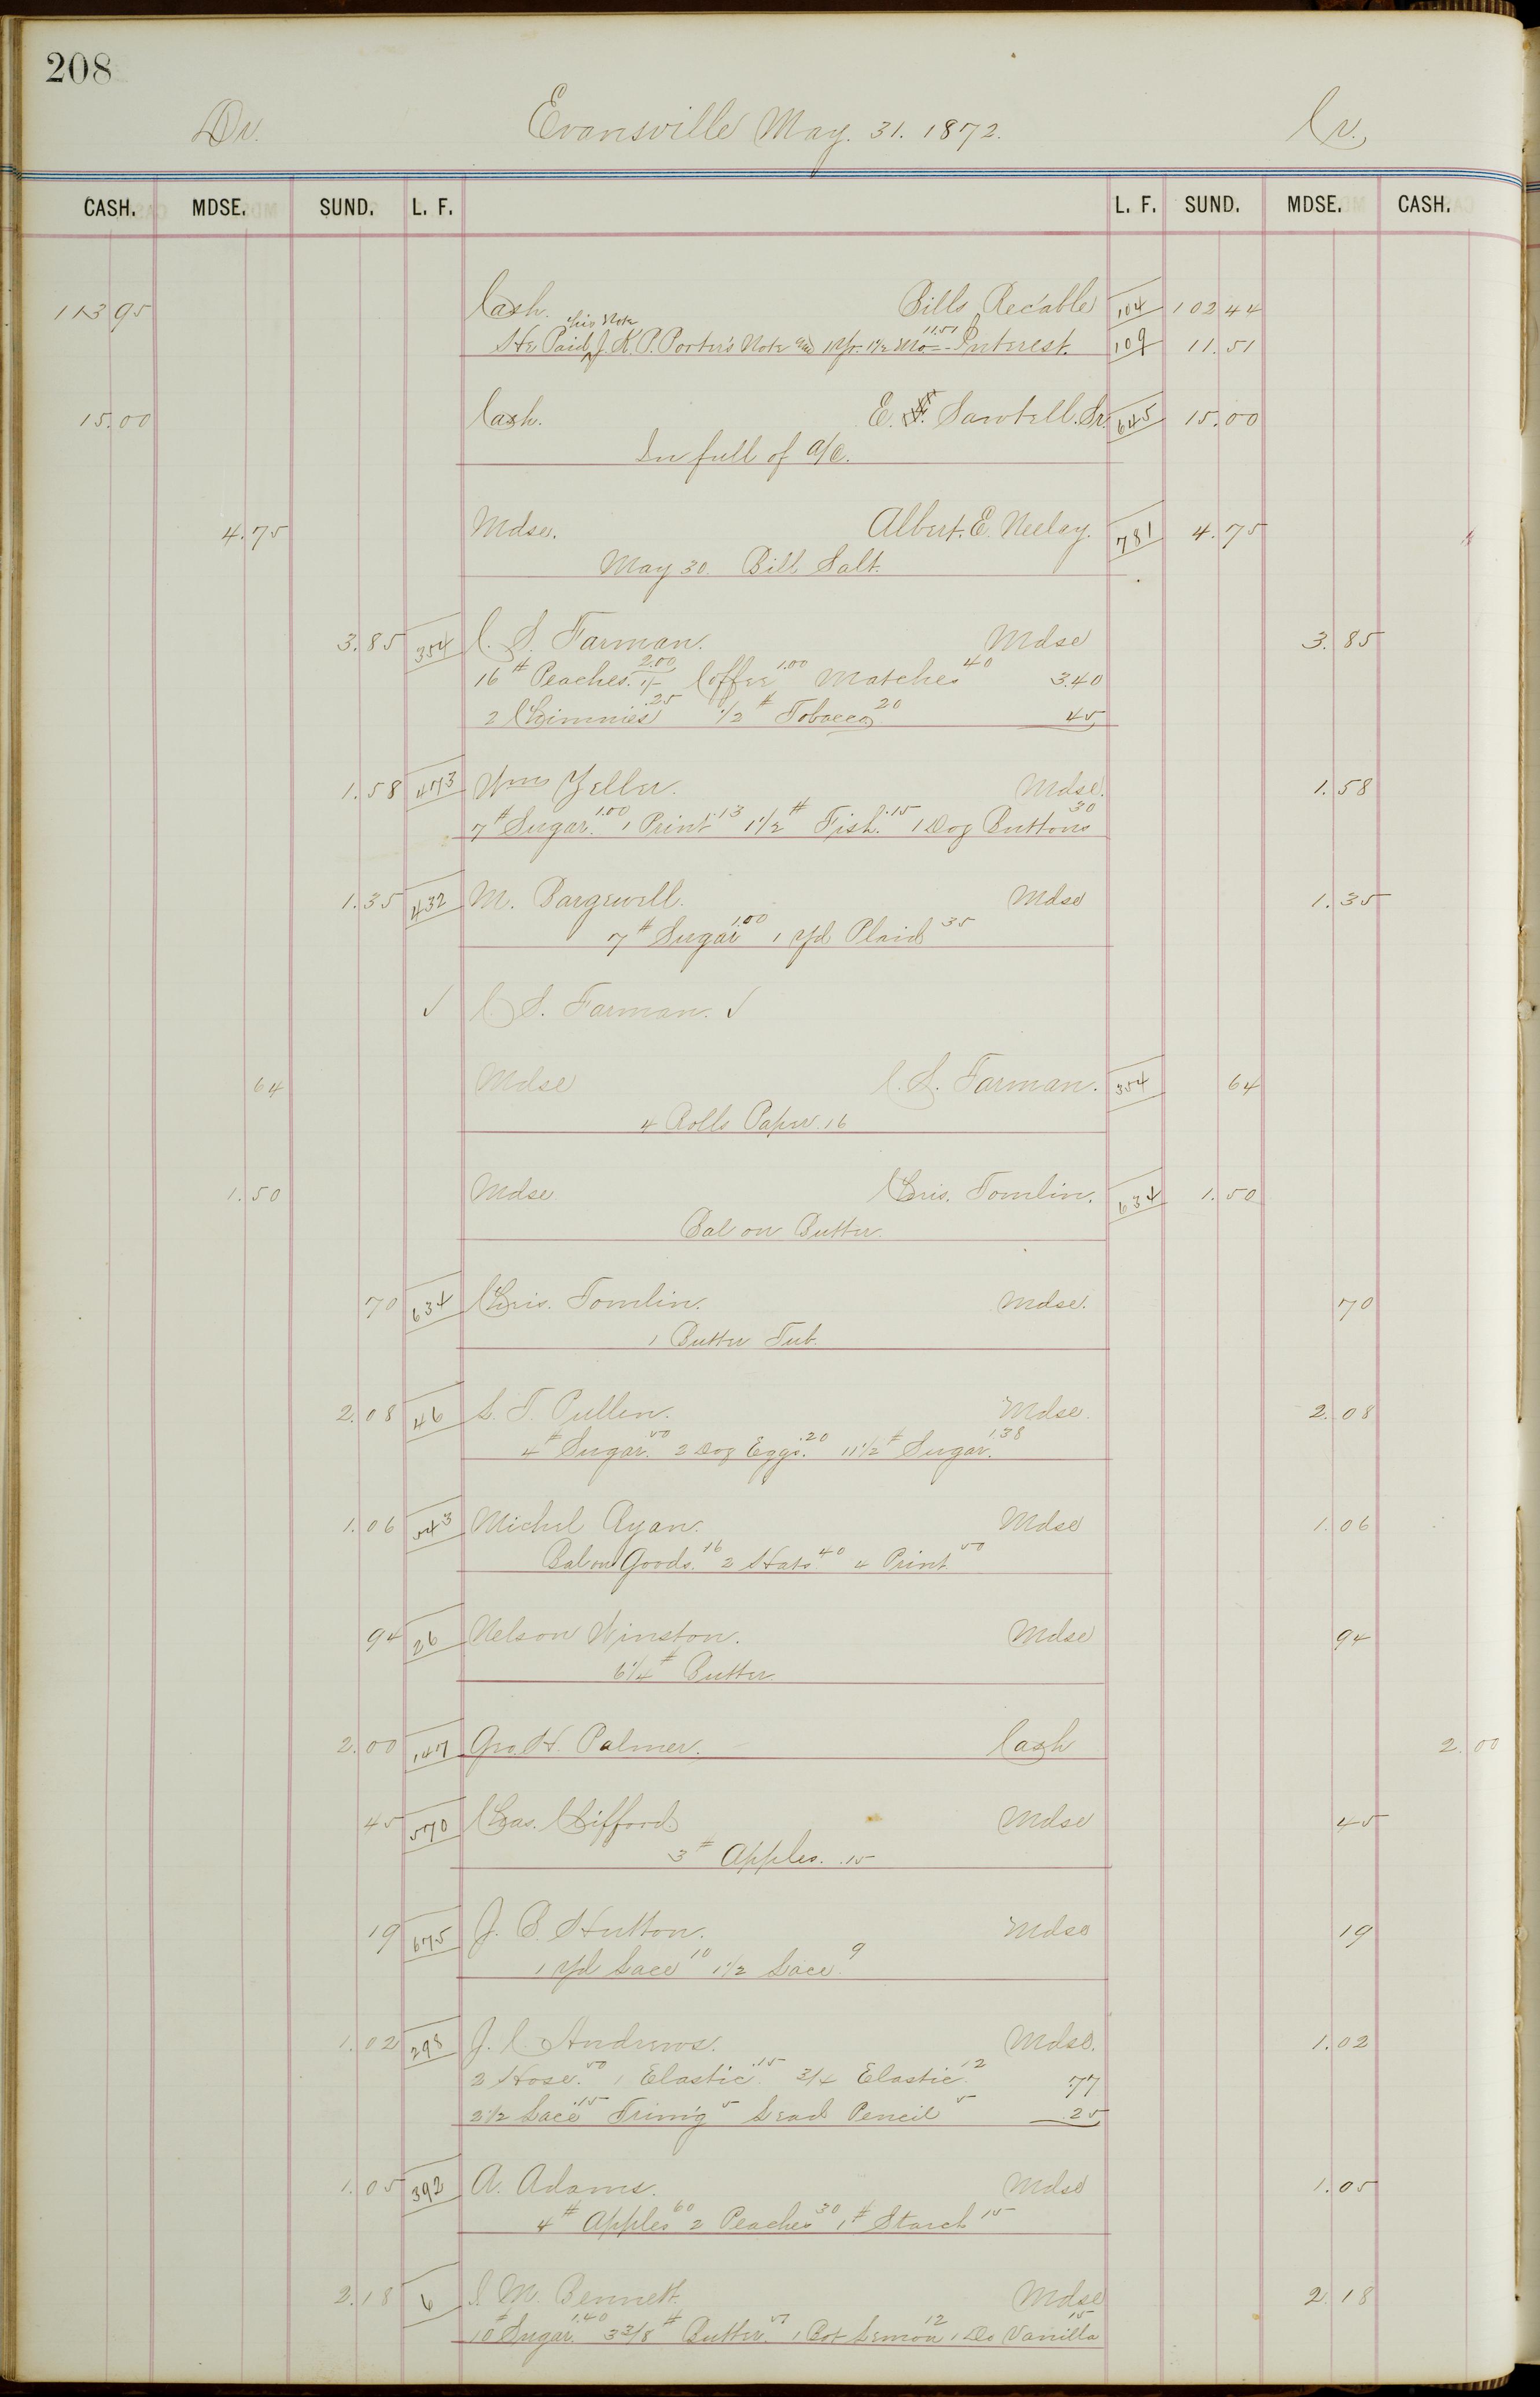 208
Dr. Evansville May. 31. 1872. Cr.
CASH. MDSE. SUND. L. F. L. F. SUND. MDSE. CASH.
113 95 Cash. Bills Rec'able 104 102 44
He Paid this Note J. K. P. Porter's Note 1 yr. 1 1/2 mo 11.51 Interest. 109 11.51
15.00 Cash. E. Sawtell. Sr. 645 15.00
In full of a/c.
4.75 Mdse. Albert. E. Neelay. 781 4.75
May 30. Bill Salt.
3.85 354 C. S. Farman. Mdse 3.85
16 # Peaches. 2.00 Coffee 1.00 Matches 40 3.40
2 Chimnies .25 1/2 # Tobacco 20 45
1.58 473 Wm Zeller. Mdse. 1.58
7 # Sugar. 1.00 1 Print 13 1 1/2 # Fish. .15 1 Doz Buttons 30
1.35 432 M. Bargewell. Mdse 1.35
7 # Sugar 1.00 1 Yd Plaid 35
✓ C. S. Farman. ✓
64 Mdse C. S. Farman. 354 64
4 Rolls Paper. 16
1.50 Mdse Chris. Tomlin. 634 1.50
Bal on Butter.
70 634 Chris. Tomlin. Mdse. 70
1 Butter Tub.
2.08 46 L. T. Pullen. Mdse. 2.08
4 # Sugar. 50 2 Doz Eggs. .20 11 1/2 # Sugar. 1.38
1.06 543 Michel Ryan. Mdse 1.06
Bal on Goods. 16 2 Hats 40 4 Print 50
94 26 Nelson Winston. Mdse 94
6 1/4 # Butter
2.00 147 Geo. H. Palmer. Cash 2.00
45 570 Chas. Clifford. Mdse 45
3 # Apples. .15
19 675 J. B. Hutton. Mdse 19
1 Yd Lace 10 1 1/2 Lace. 9
1.02 298 J. C. Andrews. Mdse. 1.02
2 Hose. 50 1 Elastic .15 3/4 Elastic. 12 .77
2 1/2 Lace .15 Trim'g 5 Lead Pencil 5 .25
1.05 392 A. Adams. Mdse 1.05
4 # Apples 60 2 Peaches 30 1 # Starch 15
2.18 6 I. M. Bennett. Mdse 2.18
10 # Sugar. 1.40 3 3/8 # Butter. 51 1 Bot Lemon 12 1 Do Vanilla 15